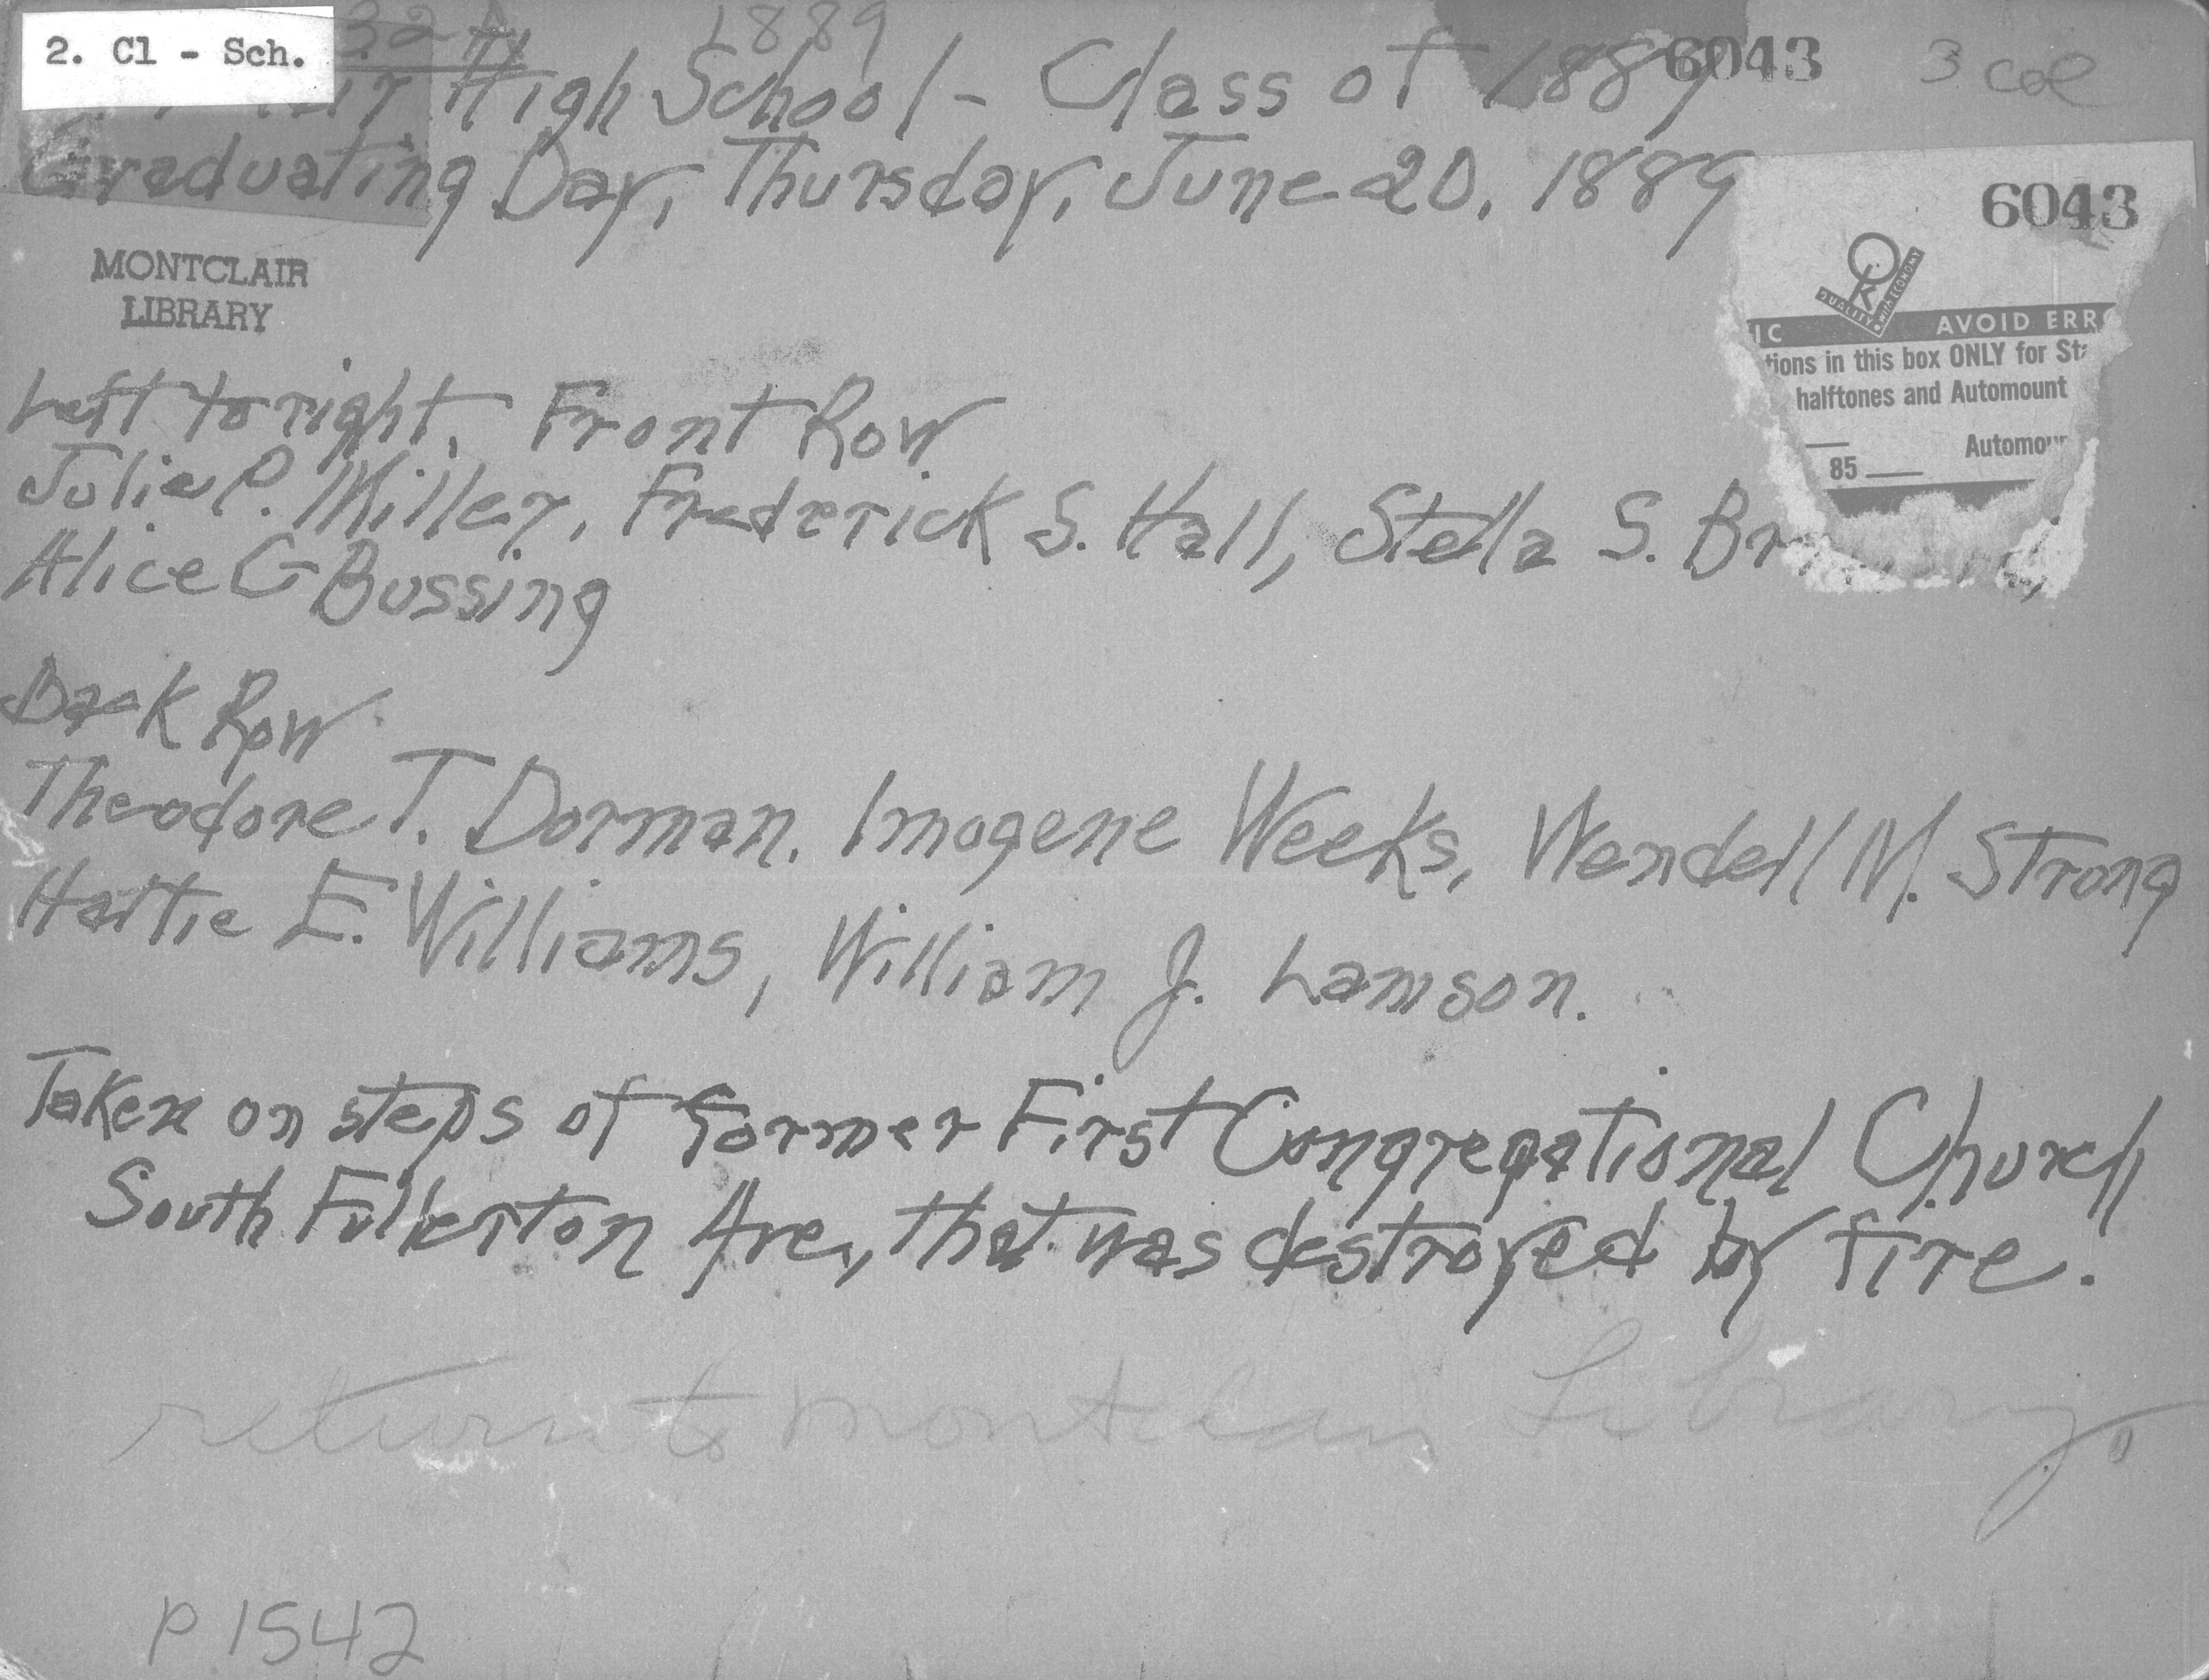 2. Cl - Sch.
1889
High School - Class of 1889
6043
3 col
Graduating Day, Thursday, June 20, 1889
6043
QUALITY WITH ECONOMY
IC AVOID ERR
tions in this box ONLY for St
halftones and Automount
Automou
85
MONTCLAIR
LIBRARY
Left to right, Front Row
Julia P. Miller, Frederick S. Hall, Stella S.
Alice G Bussing
Back Row
Theodore T. Dorman. Imogene Weeks, Wendell M. Strong
Hattie E. Williams, William J. Lamson.
Taken on steps of former First Congregational Church
South Fullerton Ave., that was destroyed by fire.
return to Montclair Library
P 1542